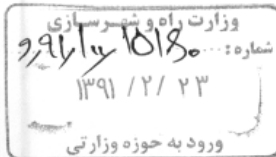 وزارت راه و شهرسازی
شماره:
۱۳۹۱ / ۲ / ۲۳
ورود به حوزه وزارتی